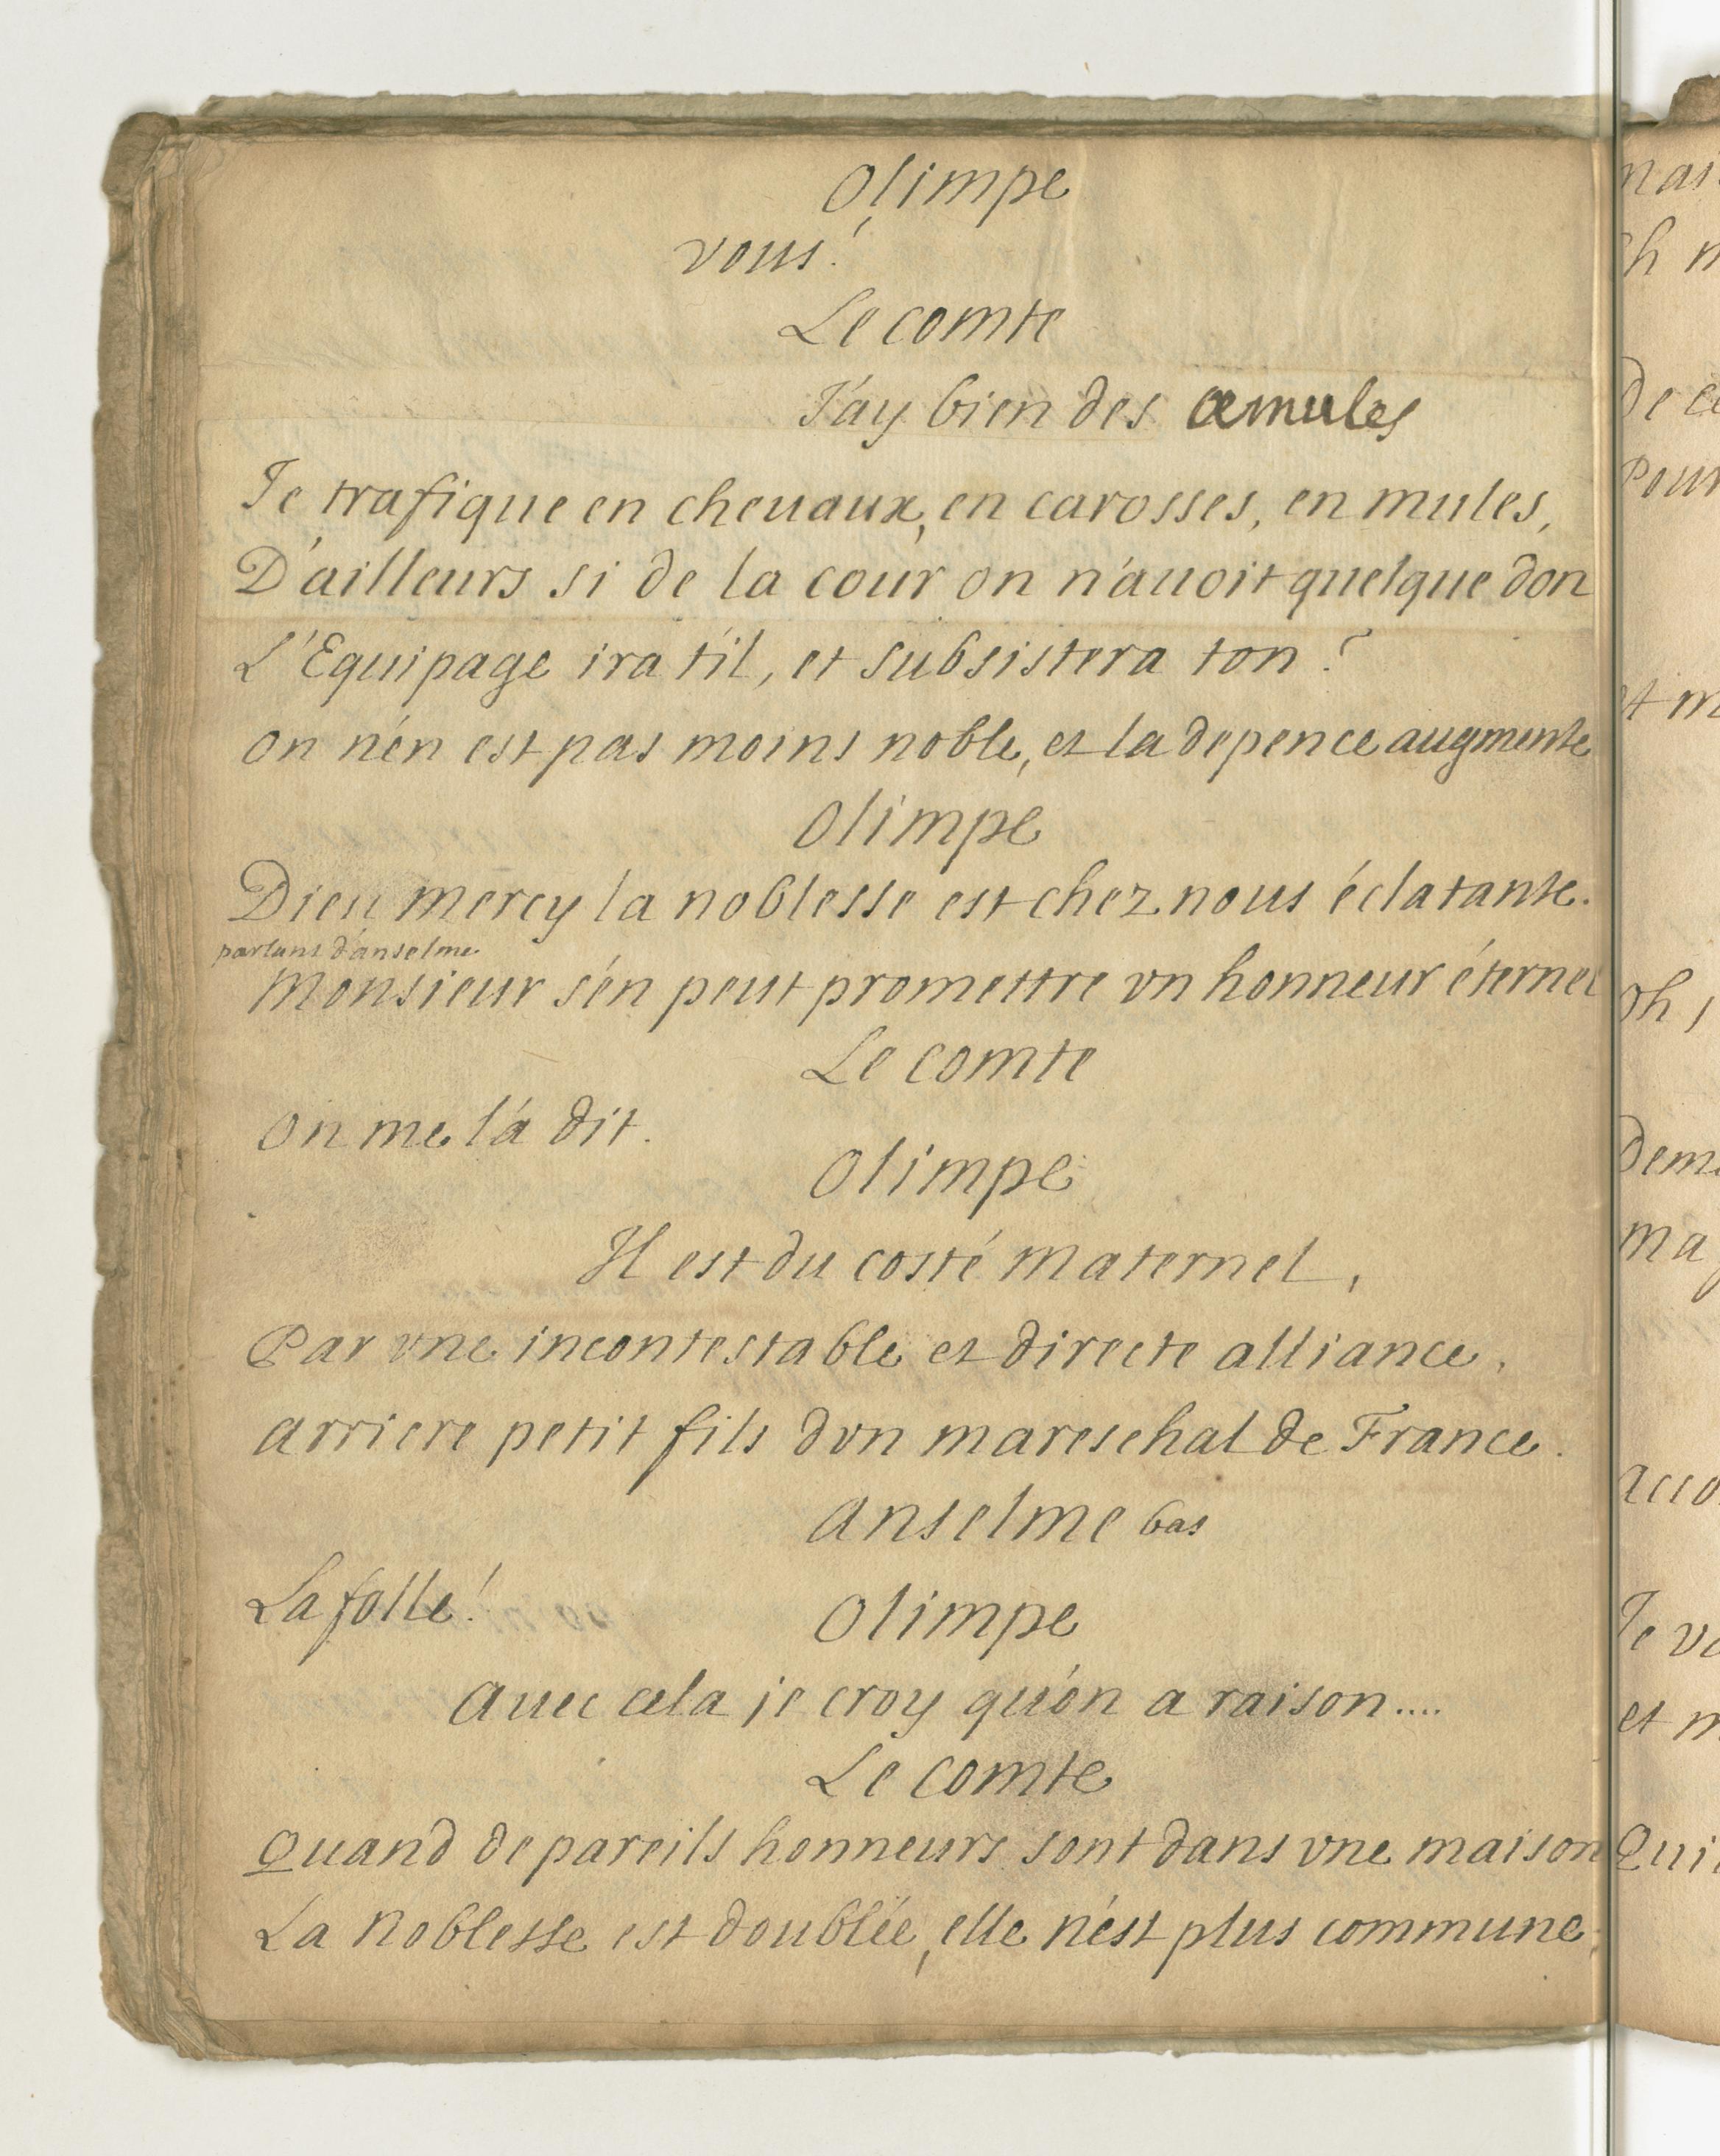 Olimpe
vous!
Le comte
J'ay bien des æmules
Je trafique en cheuaux, en carosses, en mules,
D'ailleurs si de la cour on n'auoit quelque don
L'Equipage ira t'il, et subsistera ton?
on n'en est pas moins noble, et la depence augmente
Olimpe
Dieu mercy la noblesse est chez nous éclatante.
parlant d'anselme
Monsieur s'en peut promettre vn honneur éternel
Le comte
on me l'a dit.
Olimpe
Il est du costé maternel,
Par vne incontestable et directe alliance,
arriere petit fils d'vn mareschal de France.
anselme bas
La folle!
Olimpe
auec cela je croy qu'on a raison....
Le comte
Quand de pareils honneurs sont dans vne maison
La noblesse est doublée, elle n'est plus commune